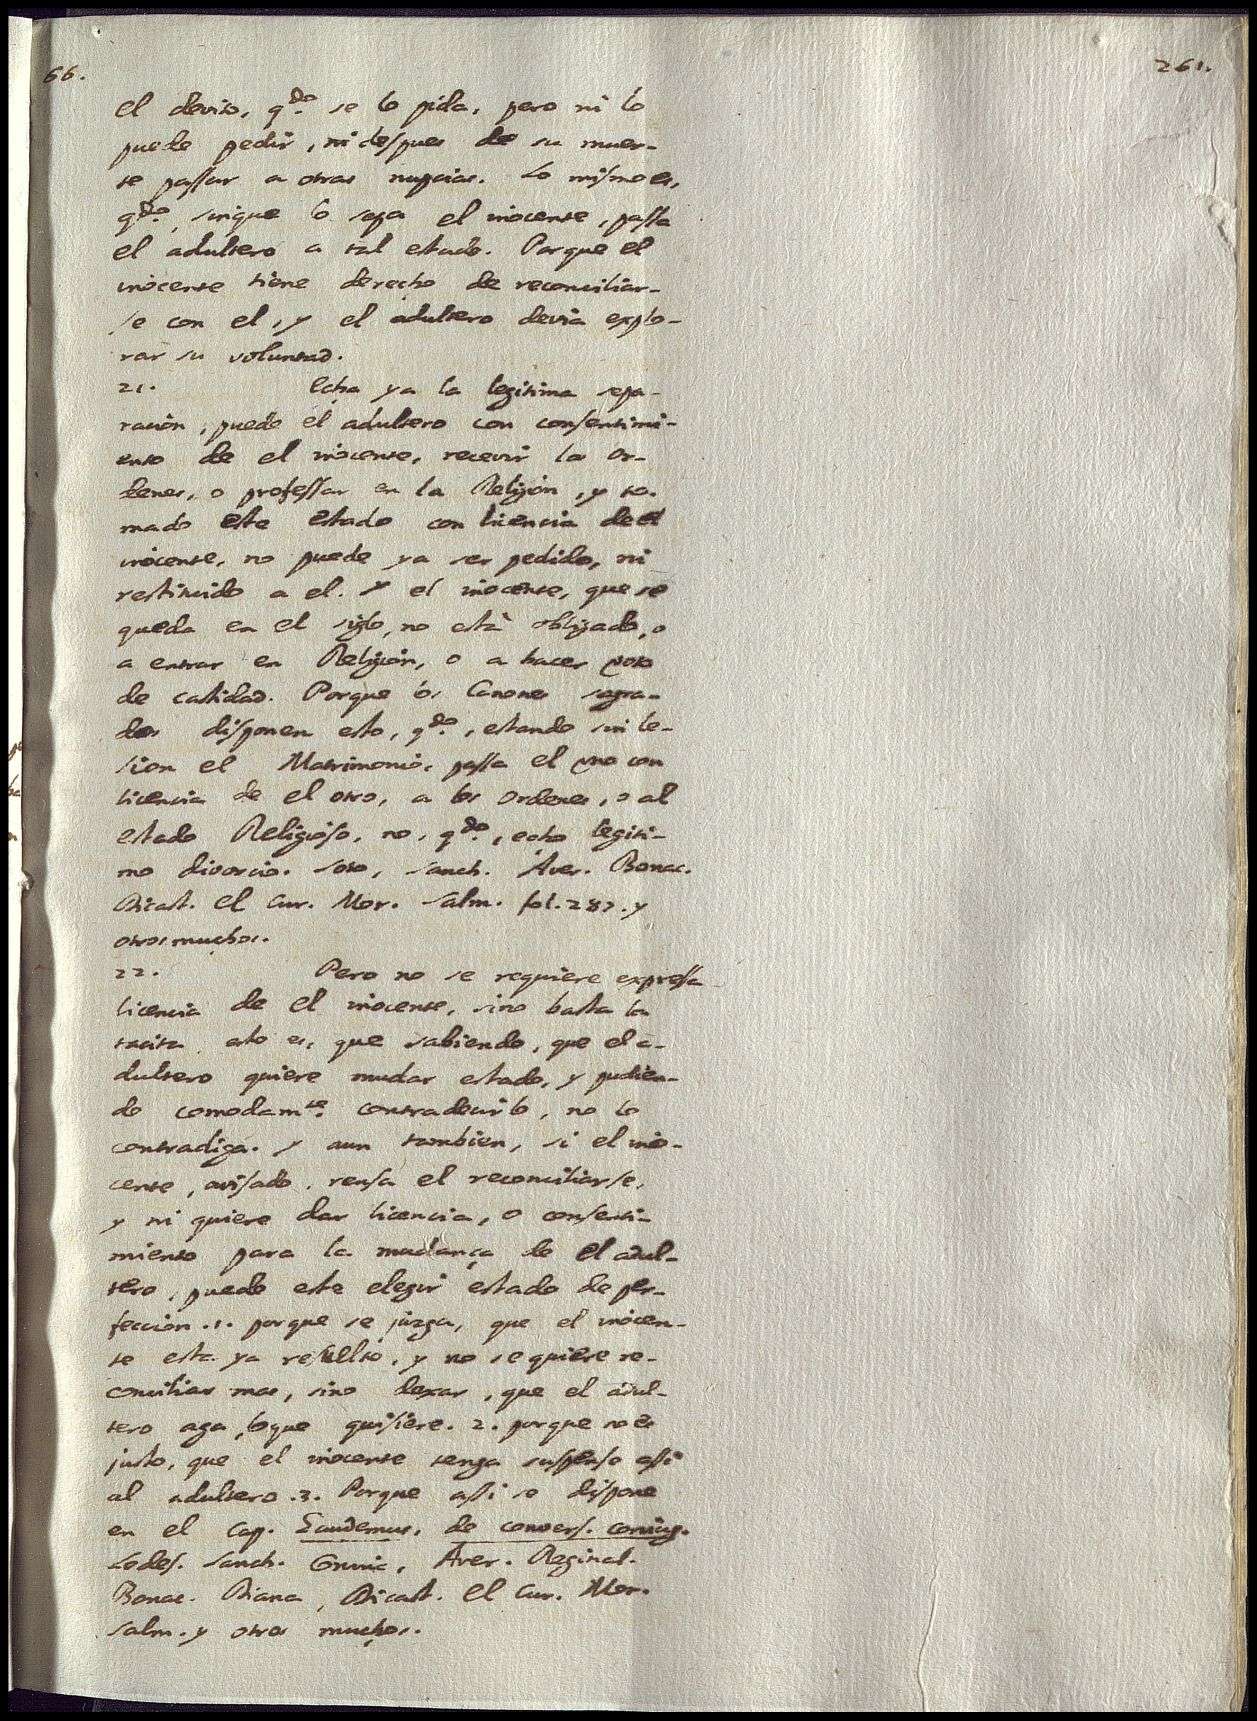 66.
261.
el devito, q.do se lo pida, pero ni lo
puede pedir, ni despues de su muer-
te passar a otras nupcias. Lo mismo es,
q.do, sinque lo sepa el inocente, passa
el adultero a tal estado. Porque el
inocente tiene derecho de reconciliar-
se con el, y el adultero devia explo-
rar su voluntad.
21. Echa ya la legitima sepa-
racion, puede el adultero con consentimi-
ento de el inocente, recevir las Or-
denes, o professar en la Religion, y to-
mado este estado con licencia de el
inocente, no puede ya ser pedido, ni
restituido a el. Y el inocente, que se
queda en el siglo, no està obligado, o
a entrar en Religion, o a hacer voto
de castidad. Porque los Canones sagra-
dos disponen esto, q.do, estando sin le-
sion el Matrimonio, passa el vno con
licencia de el otro, a los Ordenes, o al
estado Religioso, no, q.do, echo legiti-
mo divorcio. Soto, Sanch. Aver. Bonac.
Dicast. el Cur. Mor. Salm. fol. 287. y
otros muchos.
22. Pero no se requiere expressa
licencia de el inocente, sino basta la
tacita, esto es, que sabiendo, que el a-
dultero quiere mudar estado, y pudien-
do comodam.te contradecirlo, no lo
contradiga. Y aun tambien, si el ino-
cente, avisado, reusa el reconciliarse,
y ni quiere dar licencia, o consenti-
miento para la mudança de el adul-
tero, puede este elegir estado de per-
feccion. 1. porque se juzga, que el inocen-
te esta ya resuelto, y no se quiere re-
conciliar mas, sino dexar, que el adul-
tero aga, loque quisiere. 2. porque no es
justo, que el inocente tenga suspenso assi
al adultero. 3. Porque assi se dispone
en el Cap. Gaudemus, de convers. coniug.
Ledes. Sanch. Aver. Reginal.
Bonac. Diana, Dicast. el Cur. Mor.
Salm. y otros muchos.